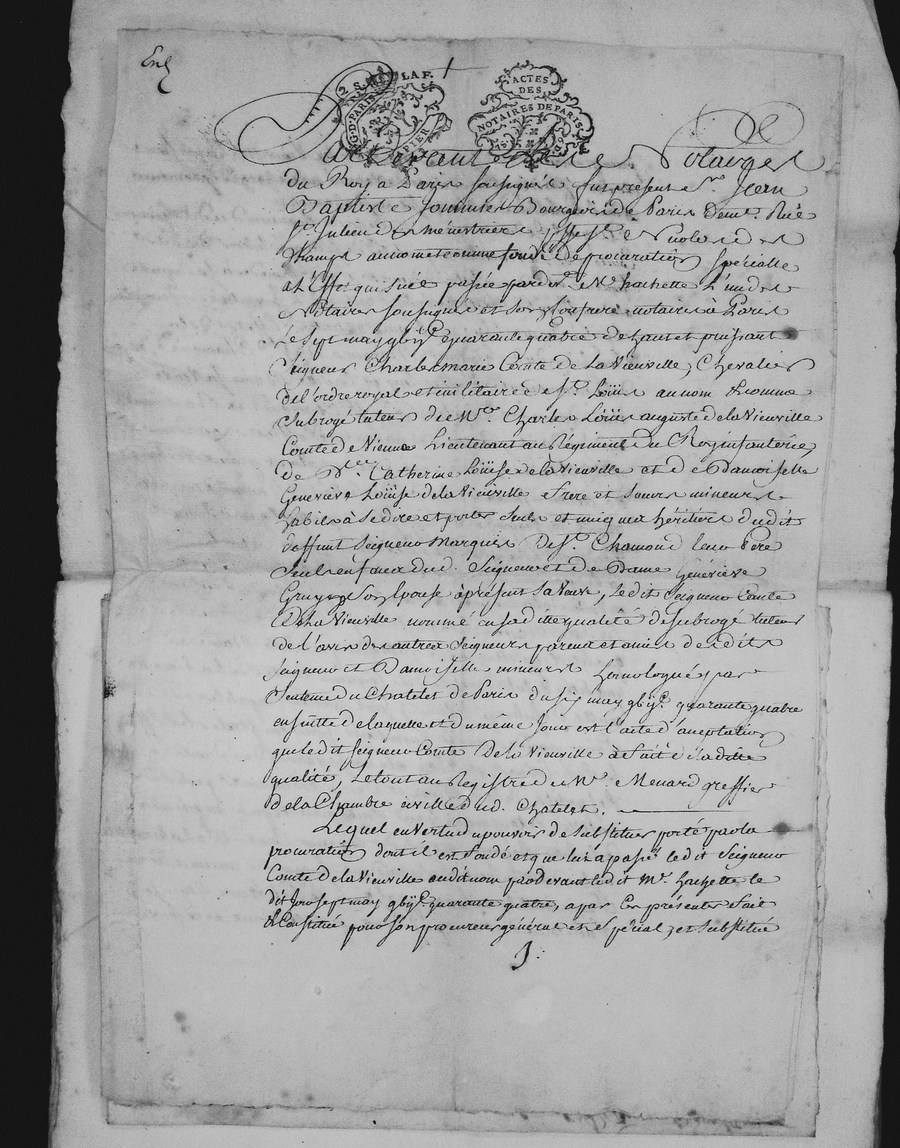 Enl
2 S. LA F.
G.D. PARIS
PAPIER
ACTES
DES
NOTAIRES DE PARIS
Pardevant les Notaires
du Roy a Paris soussignés fut présent Sr. Jean
Baptiste Sommier Bourgeois de Paris demt. Rüe
St. Julien des ménestriers psse. St. Nicolas des
champs au nom et comme fondé de procuration spécialle
a l'effet qui suit passée pardt. Me. hachette L'un des
Notaires soussignés et son confrere notaires à Paris
Le sept may gbijc. quarante quatre de haut et puissant
Seigneur Charles marie Comte de La Vieuville, Chevalier
de l'ordre royal et militaire de St. Loüis au nom & comme
subrogé tuteur de Mre. Charles Loüis auguste de la Vieuville
Comte de Vienne Lieutenant au Régiment du Roy infanterie,
de Dlle. Catherine Loüise de la Vieuville et de Damoiselle
Geneviéve Loüise de la Vieuville frere et soeurs mineurs
habils à se dire et porter seuls et uniques héritiers dudit
deffunt Seigneur Marquis De St. Chamond leur Pere
seuls enfans dud. Seigneur et de Dame Généviéve
Gruyn son Epouse àprésent sa veuve, Ledit Seigneur Comte
De La Vieuville nommé en sa ditte qualité de subrogé tuteur
de l'avis des autres Seigneurs parens et amis desdits
Seigneur et Damoiselles mineurs homologué par
Sentence du Chatelet de Paris du six may gbijc. quarante quatre
ensuitte de laquelle et du même jour est l'acte d'acceptation
que le dit Seigneur Comte De la Vieuville à fait de ladite
qualité, Le tout au Registre de Me. Menard greffier
de la Chambre civille dud. Chatelet.
Lequel en vertu du pouvoir de substituer porté par la
procuration dont il est fondé et que lui a passé ledit Seigneur
Comte de la Vieuville audit nom pardevant ledit Me. hachette le
dit jour sept may gbijc. quarante quatre, a par ces présentes fait
& Constitué pour son procureur général et spécial, et substitué